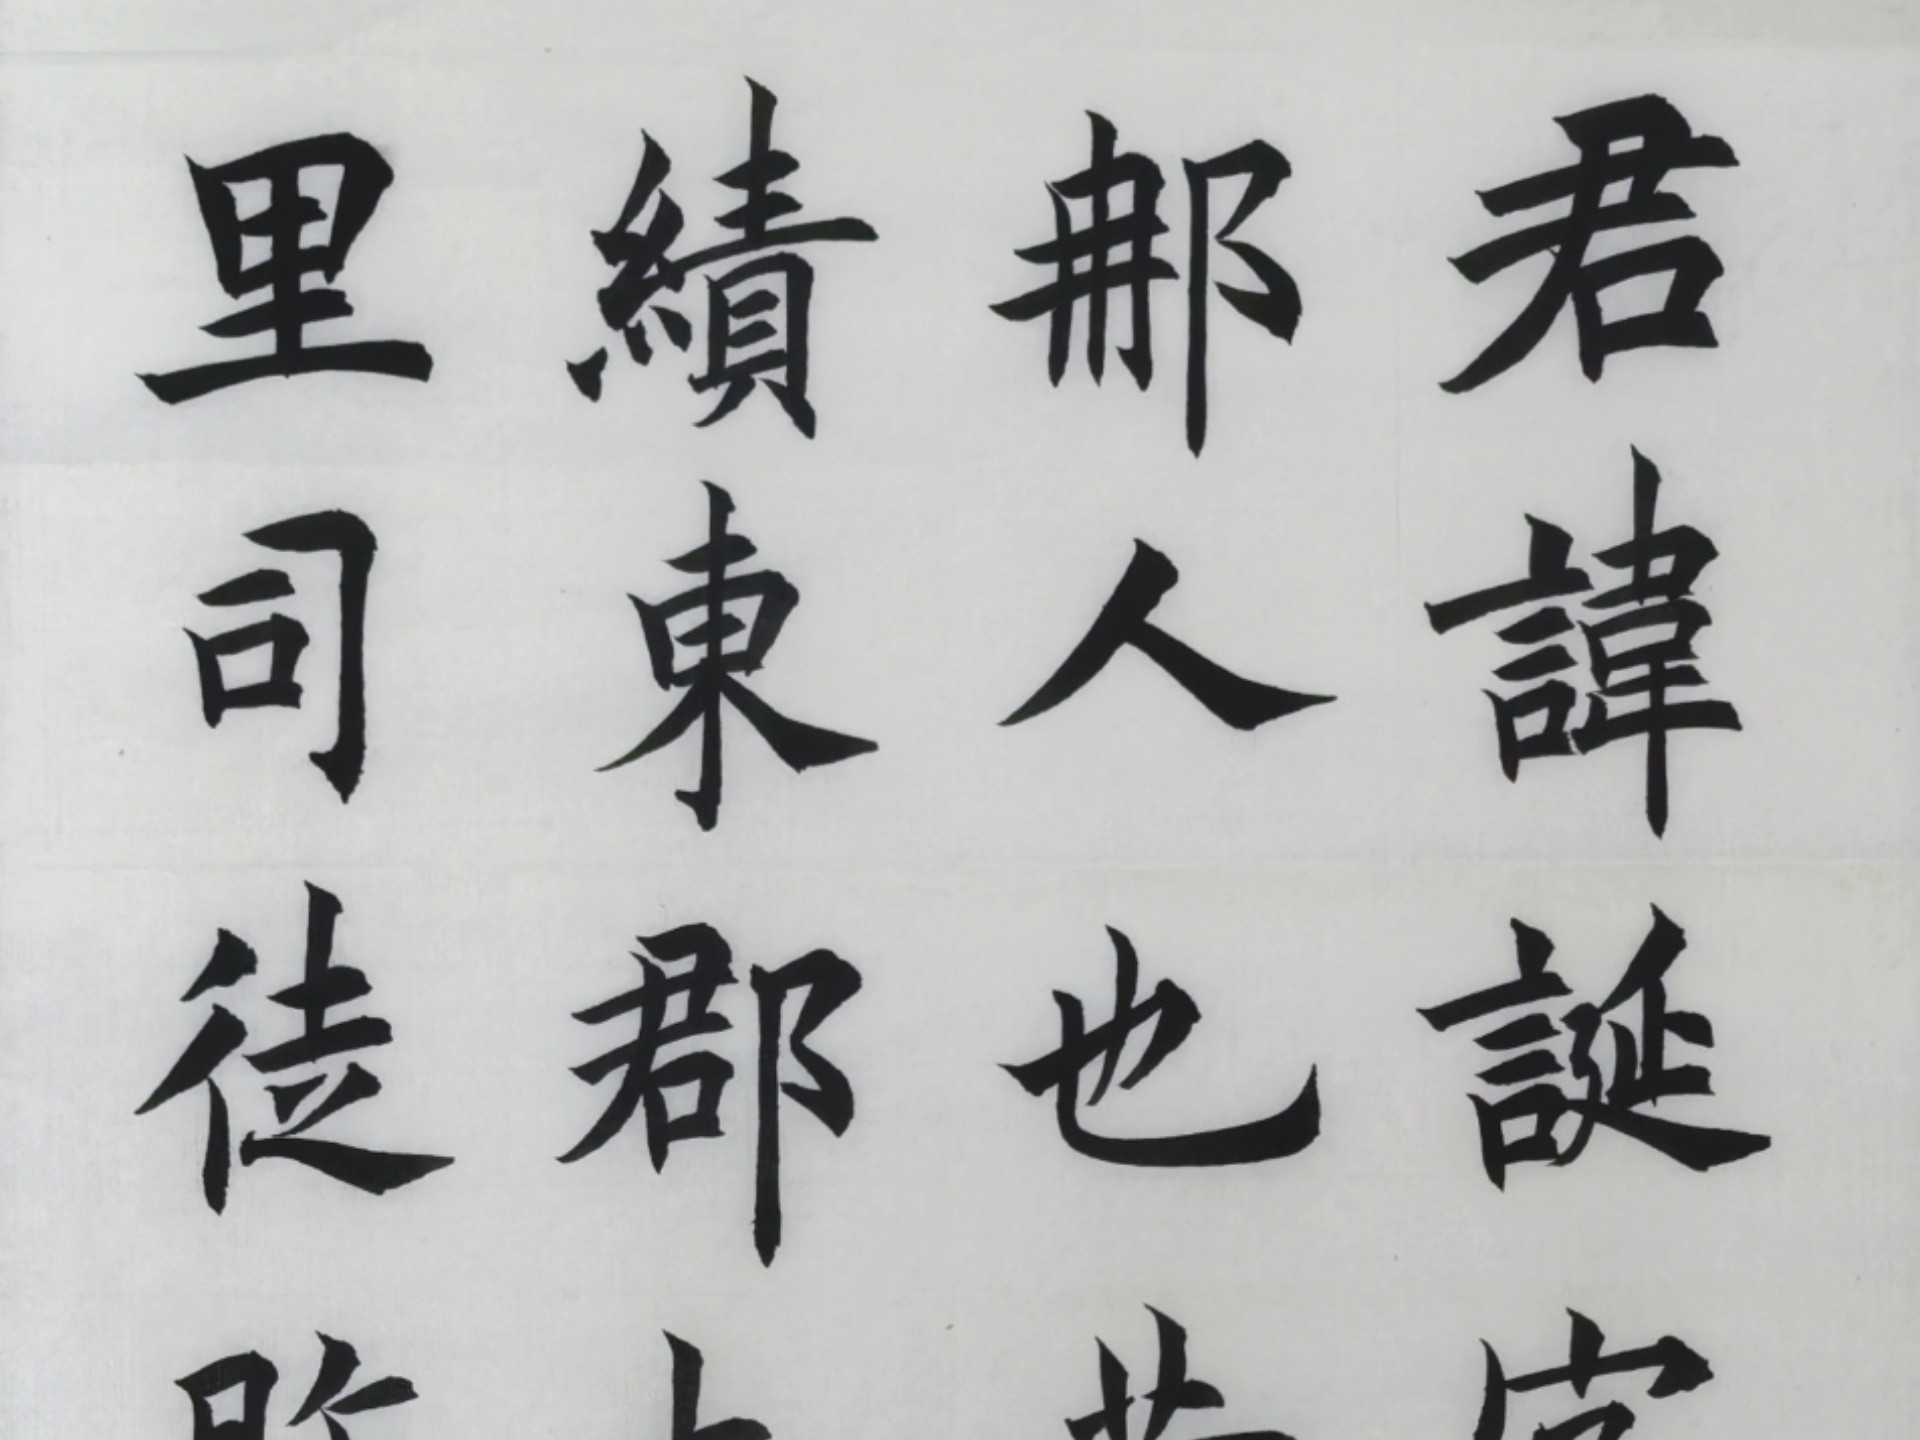 君諱誕
那人也
績東郡
里司徒